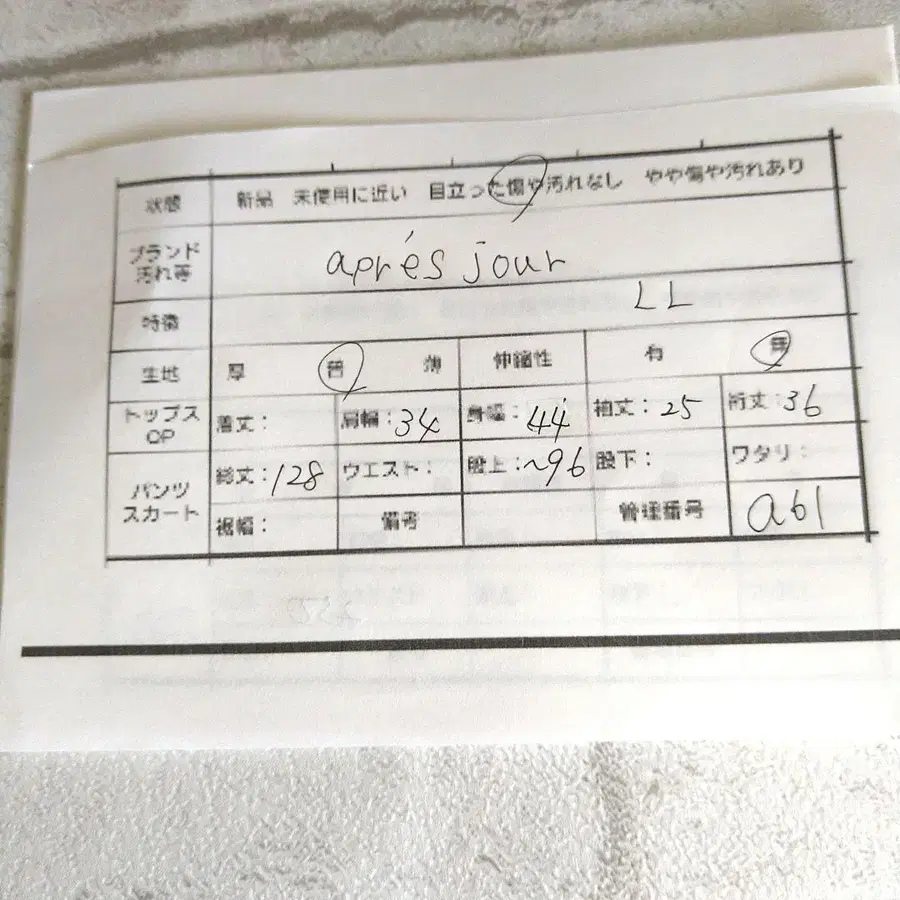 状態 新品 未使用に近い 目立った傷や汚れなし やや傷や汚れあり
ブランド
汚れ等 après jour
特徴 LL
生地 厚 普 薄 伸縮性 有 無
トップス
OP 着丈: 肩幅:34 身幅:44 袖丈:25 裄丈:36
パンツ
スカート 総丈:128 ウエスト: 股上:~96 股下: ワタリ:
裾幅: 備考 管理番号 a61